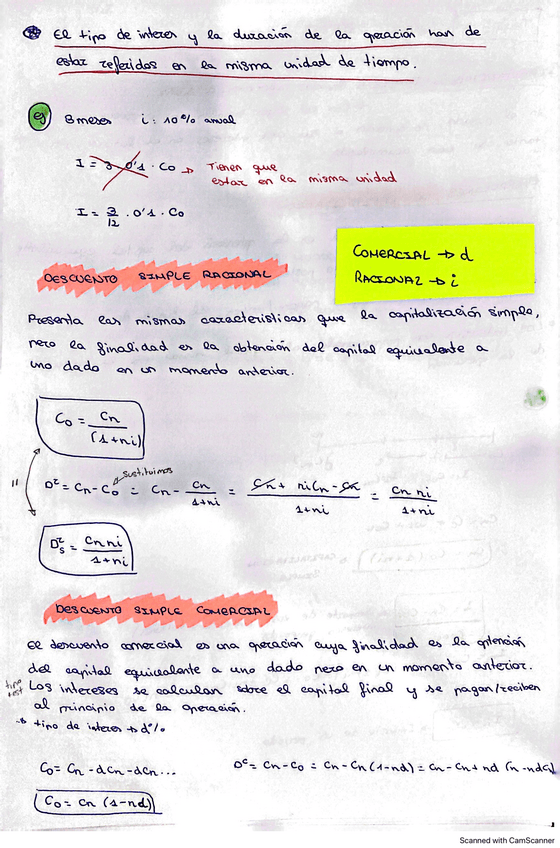 El tipo de interes y la duración de la operación han de
estar referidos en la misma unidad de tiempo.
ej 3 meses i: 10% anual
I = 3 · 0'1 · Co → Tienen que
estar en la misma unidad
I = 3/12 · 0'1 · Co
COMERCIAL → d
RACIONAL → i
DESCUENTO SIMPLE RACIONAL
Presenta las mismas caracteristicas que la capitalización simple,
pero la finalidad es la obtención del capital equivalente a
uno dado en un momento anterior.
Co = Cn / (1+ni)
sustituimos
" Dr = Cn - Co = Cn - Cn / 1+ni = Cn + niCn - Cn / 1+ni = Cn ni / 1+ni
Drs = Cn ni / 1+ni
DESCUENTO SIMPLE COMERCIAL
El descuento comercial es una operación cuya finalidad es la obtención
del capital equivalente a uno dado pero en un momento anterior.
Los intereses se calculan sobre el capital final y se pagan/reciben
al principio de la operación.
→ tipo de interes → d%
Co = Cn - dCn - dCn ... Dc = Cn - Co = Cn - Cn (1-nd) = Cn - Cn + nd Cn = ndCn
Co = Cn (1-nd)
Scanned with CamScanner